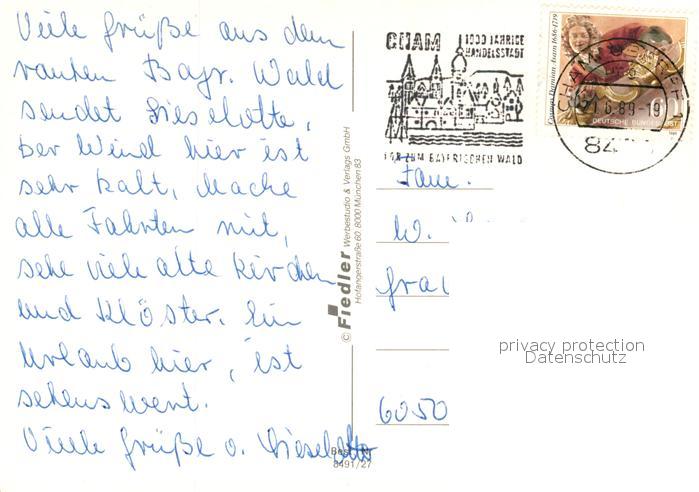 Viele grüße aus dem
rauhen Bayr. Wald
sendet Lieselotte,
Der Wind hier ist
sehr kalt, Mache
alle Fahrten mit,
sehe viele alte Kirchen
und Klöster. Ein
Urlaub hier, ist
sehenswert.
Viele grüße v. Lieselotte
© Fiedler Werbestudio & Verlags GmbH
Hofangerstraße 60 8000 München 83
Best. Nr.
8491/27
CHAM 1000 JÄHRIGE
HANDELSSTADT
TOR ZUM BAYERISCHEN WALD
Cosmas Damian Asam 1686-1739
DEUTSCHE BUNDES
CHAM
6.89-19
Fam.
W.
6050
privacy protection
Datenschutz